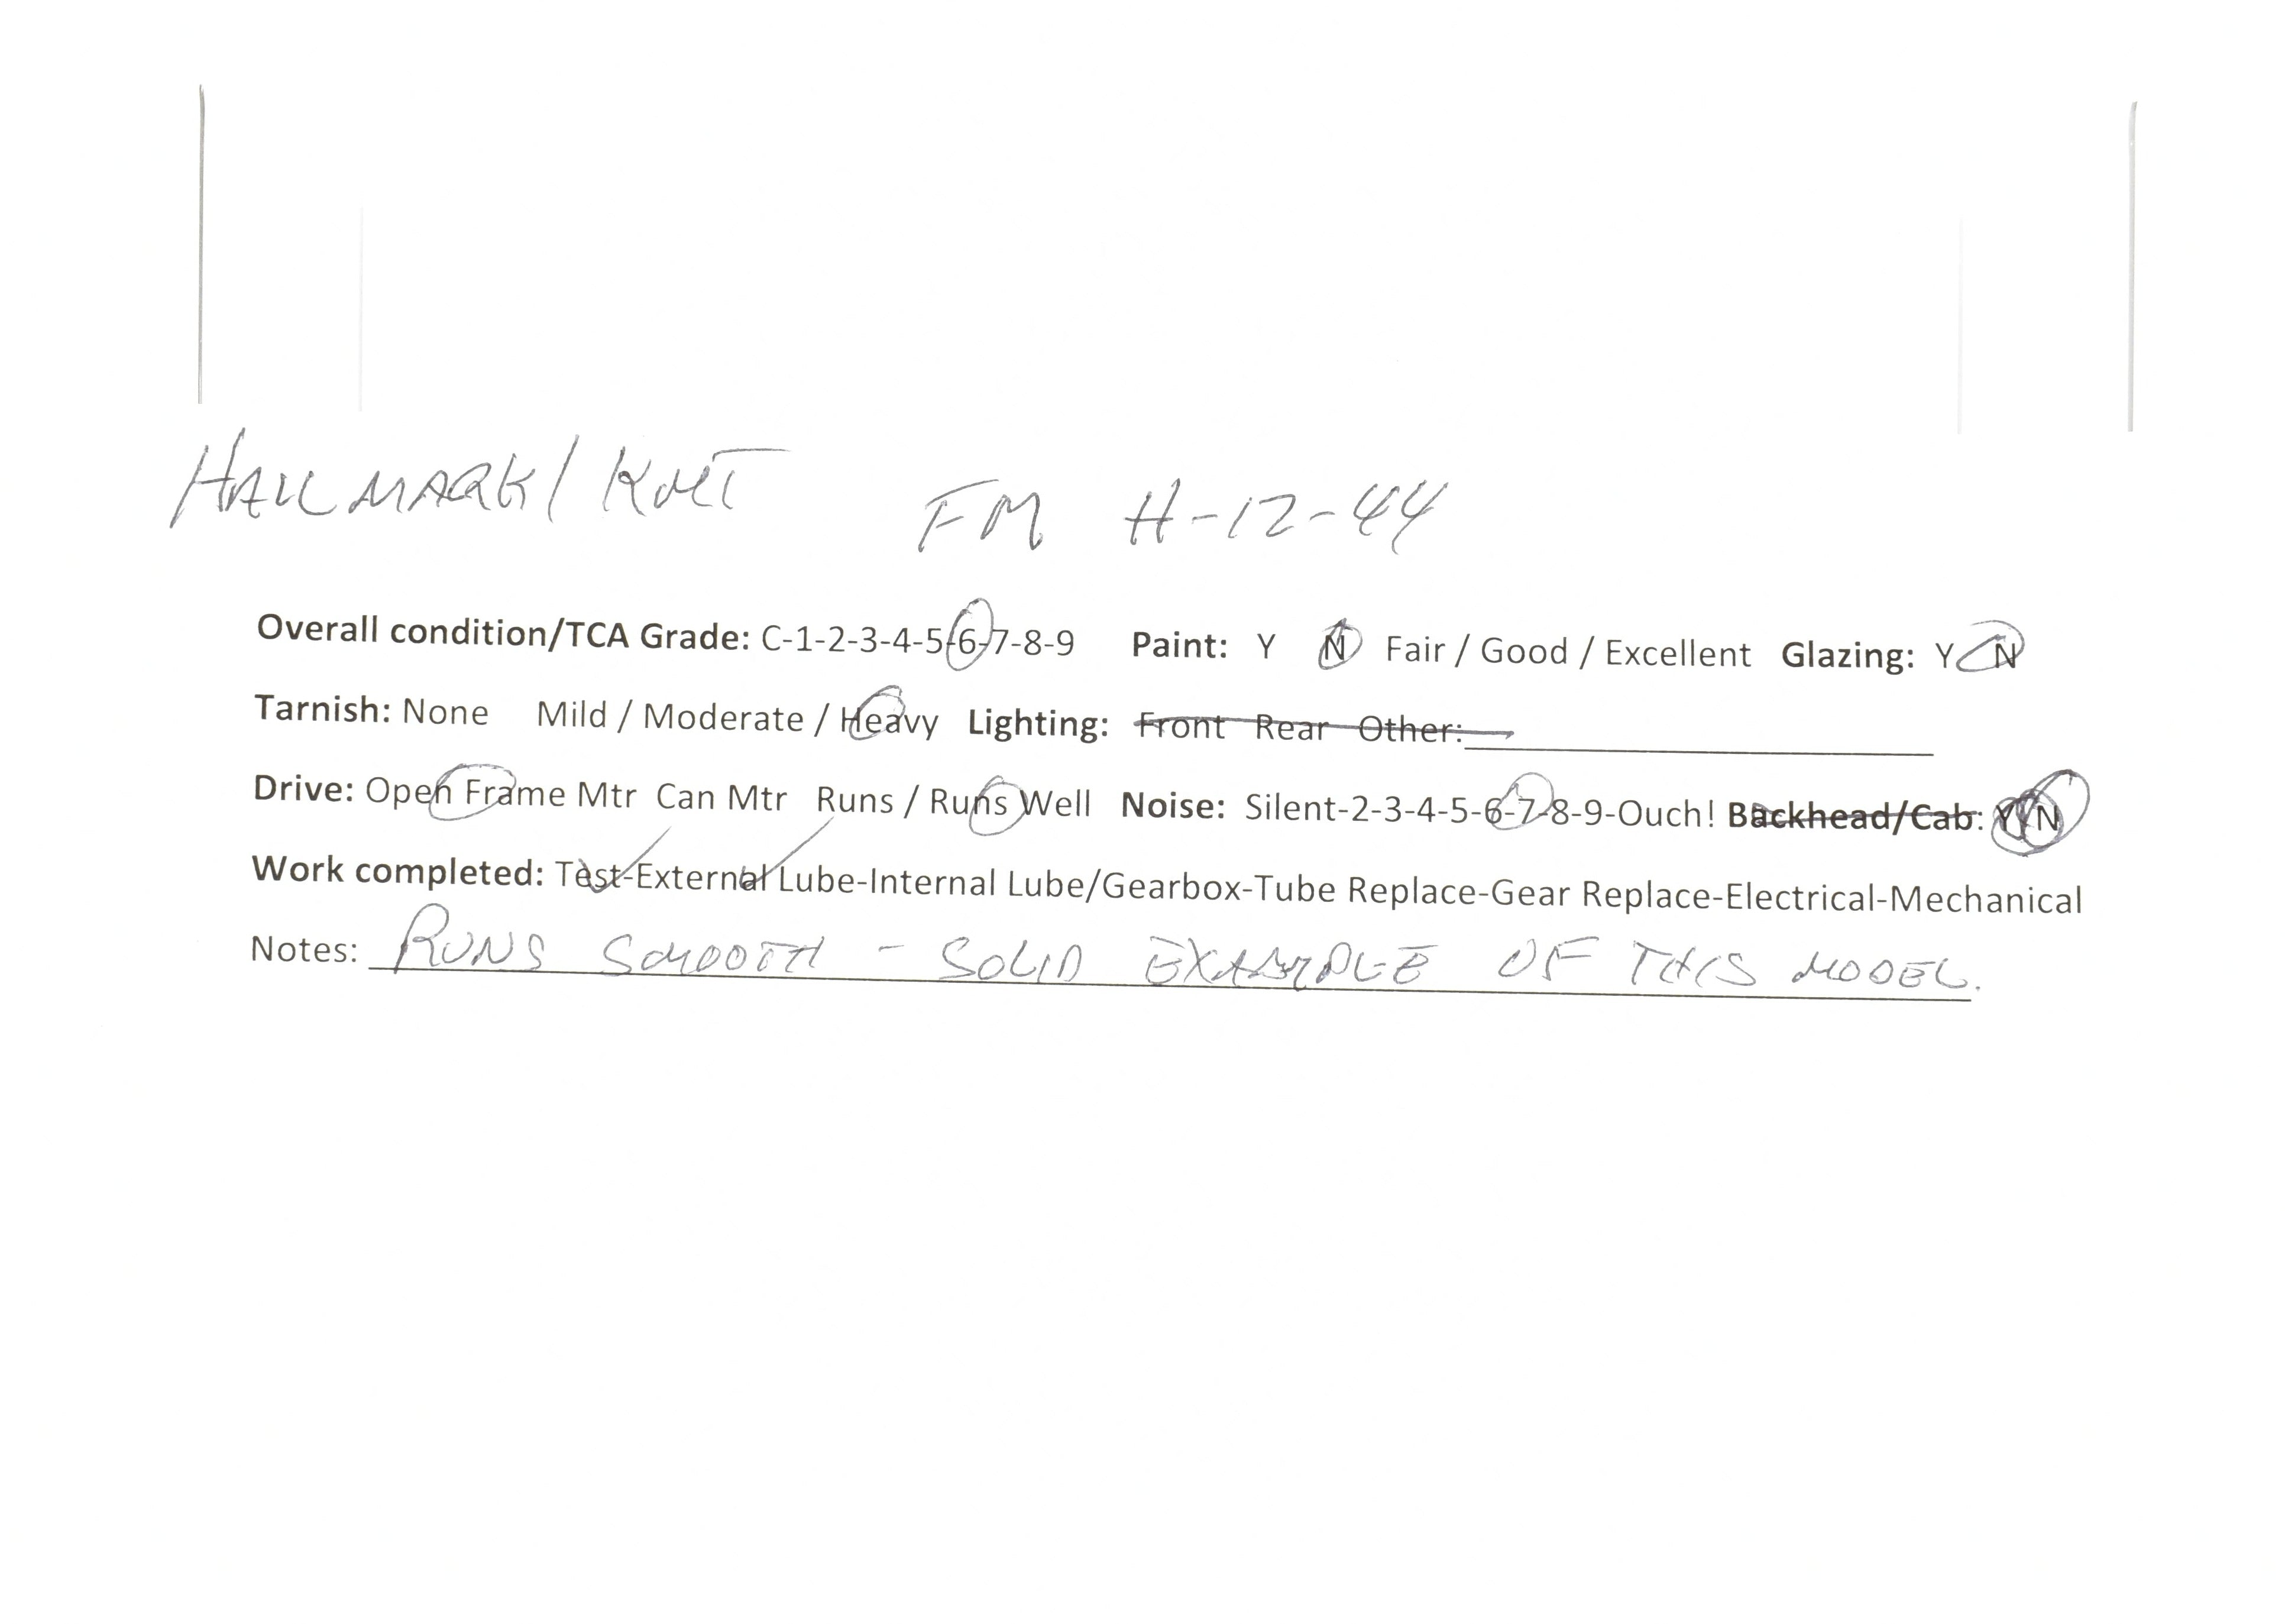 HALLMARK / KMT FM H-12-44
Overall condition/TCA Grade: C-1-2-3-4-5-6-7-8-9 Paint: Y N Fair / Good / Excellent Glazing: Y N
Tarnish: None Mild / Moderate / Heavy Lighting: Front Rear Other:
Drive: Open Frame Mtr Can Mtr Runs / Runs Well Noise: Silent-2-3-4-5-6-7-8-9-Ouch! Backhead/Cab: Y/N
Work completed: Test-External Lube-Internal Lube/Gearbox-Tube Replace-Gear Replace-Electrical-Mechanical
Notes: RUNS SMOOTH - SOLID EXAMPLE OF THIS MODEL.